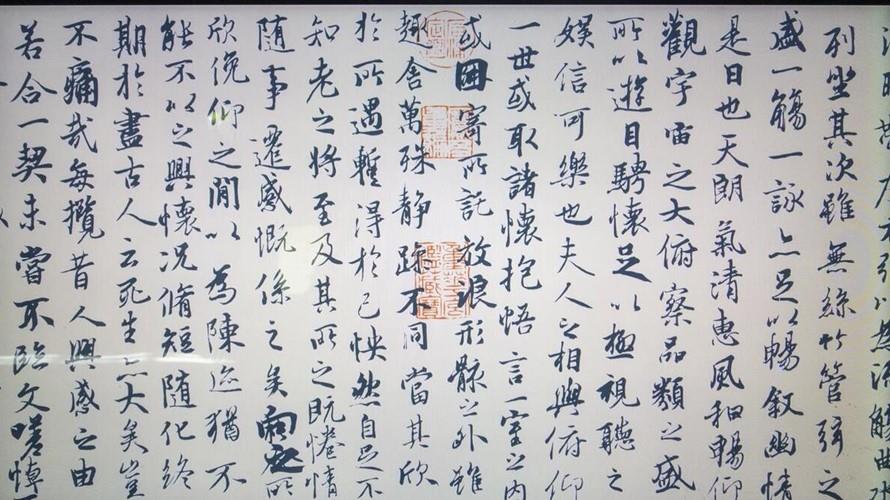 左右引以為流觴曲
列坐其次雖無絲竹管弦之
盛一觴一詠亦足以暢敘幽情
是日也天朗氣清惠風和暢仰
觀宇宙之大俯察品類之盛
所以遊目騁懷足以極視聽之
娛信可樂也夫人之相與俯仰
一世或取諸懷抱悟言一室之內
或因寄所託放浪形骸之外雖
趣舍萬殊靜躁不同當其欣
於所遇蹔得於己怏然自足不
知老之將至及其所之既惓情
隨事遷感慨係之矣向之所
欣俛仰之閒以為陳迹猶不
能不以之興懷況脩短隨化終
期於盡古人云死生亦大矣豈
不痛哉每攬昔人興感之由
若合一契未嘗不臨文嗟悼